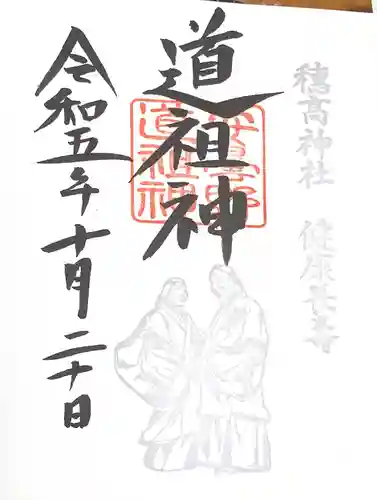 穂高神社 健康長寿
道祖神
令和五年十月二十日